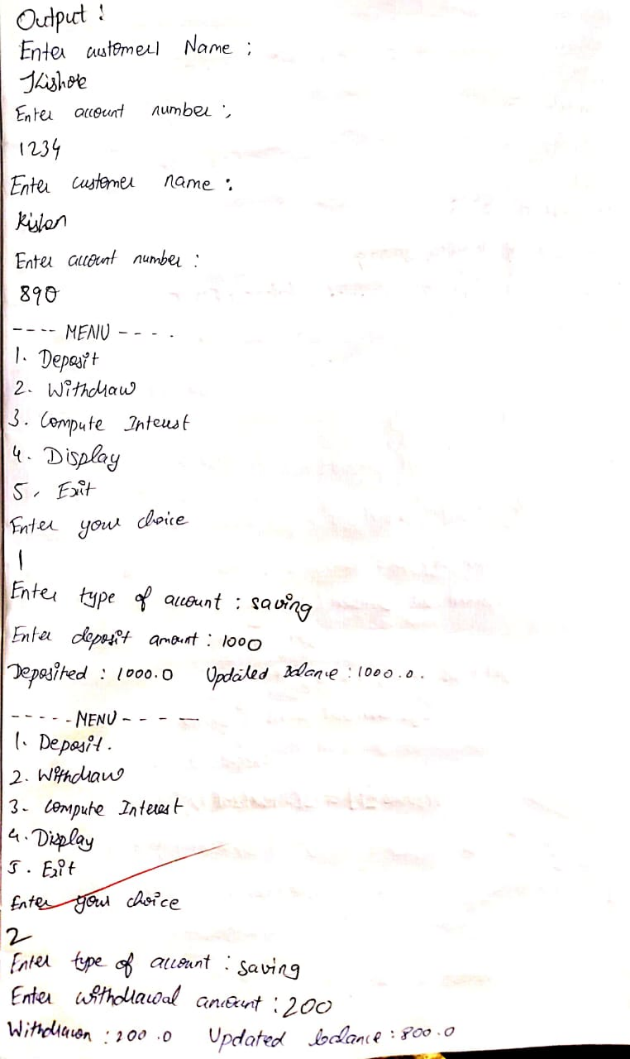 Output :
Enter customer Name :
Kishore
Enter account number :
1234
Enter customer name :
Kishan
Enter account number :
890
---- MENU ----
1. Deposit
2. Withdraw
3. Compute Interest
4. Display
5. Exit
Enter your choice
1
Enter type of account : saving
Enter deposit amount : 1000
Deposited : 1000.0 Updated balance : 1000.0.
----- MENU -----
1. Deposit.
2. Withdraw
3. Compute Interest
4. Display
5. Exit
Enter your choice
2
Enter type of account : saving
Enter withdrawal amount : 200
Withdrawn : 200.0 Updated balance : 800.0